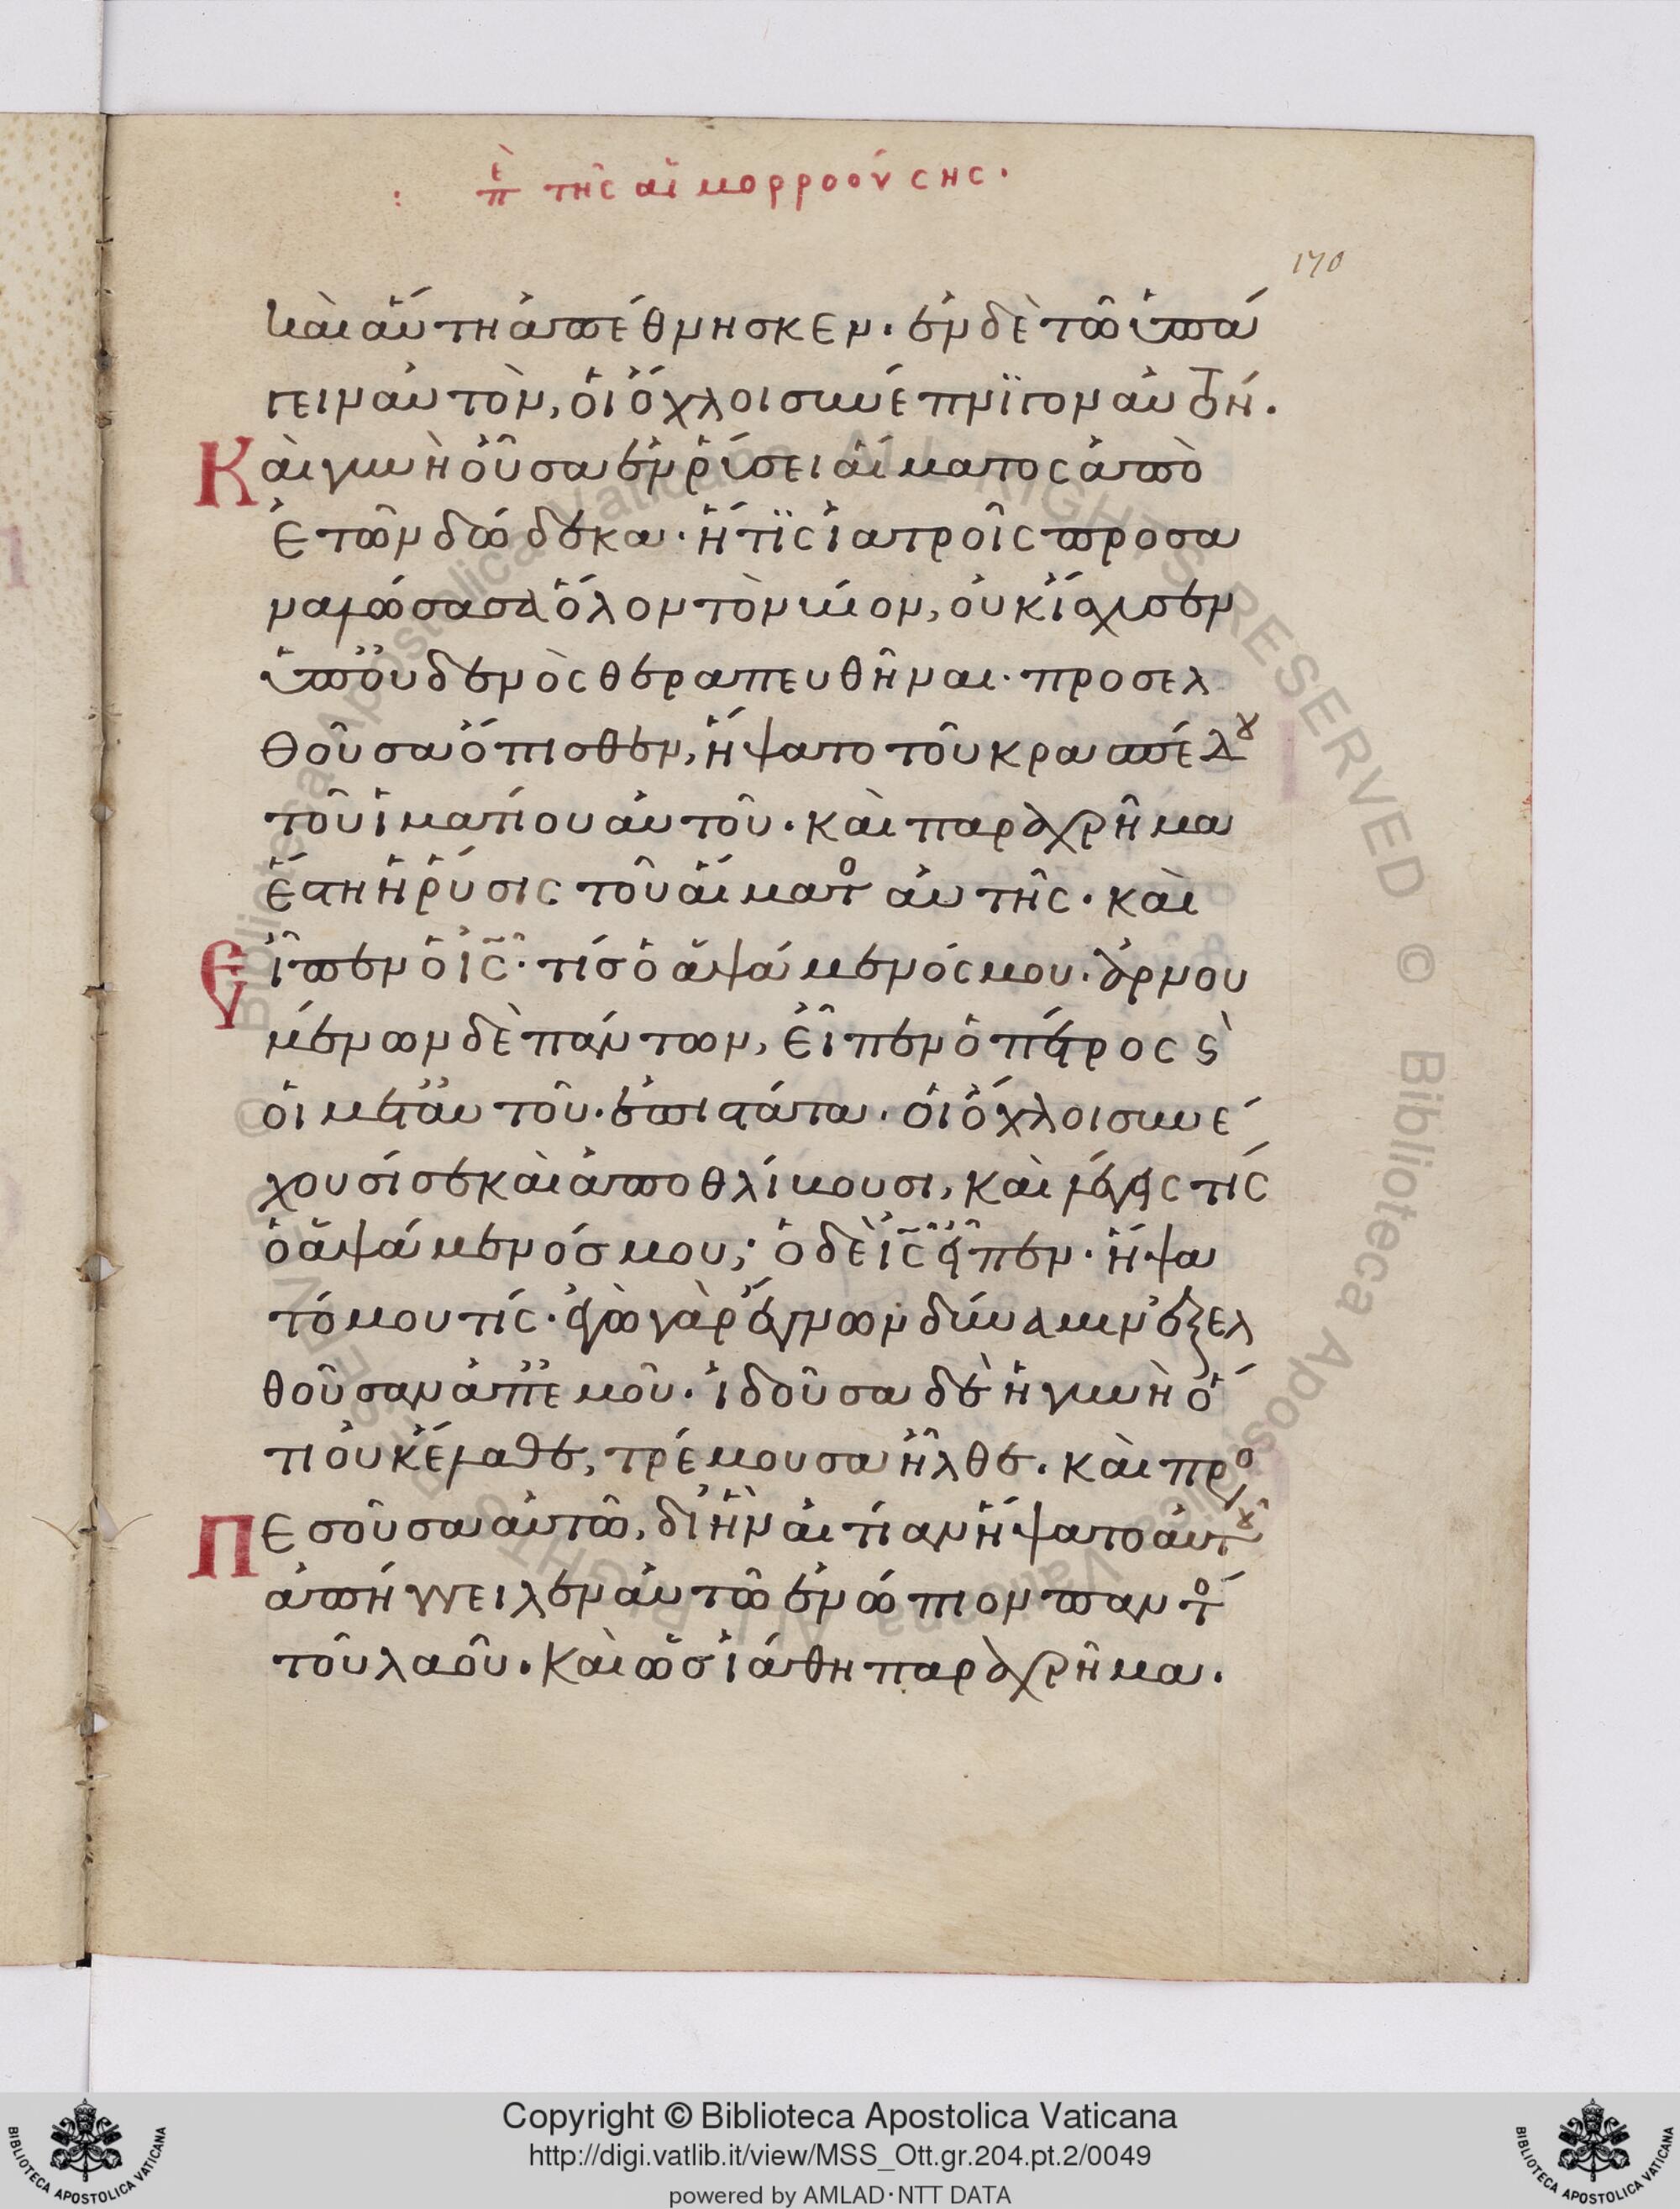 : πε τῆς αἱμορροούσης.
170
καὶ αὕτη ἀπέθνησκεν. ἐν δὲ τῶ ὑπά
γειν αὐτὸν, οἱ ὄχλοι συνέπνϊγον αὐτόν.
Καὶ γυνὴ οὖσα ἐν ῥύσει αἵματος ἀπὸ
ἐτῶν δώδεκα. ἥτϊς ἰατροῖς προσα
ναλώσασα ὅλον τὸν βίον, οὐκ ἴσχυσεν
ὑπ' οὐδενὸς θεραπευθῆναι. προσελ
θοῦσα ὄπισθεν, ἥψατο τοῦ κρασπέδου
τοῦ ἱματίου αὐτοῦ. καὶ παραχρῆμα
ἔστη ἡ ῥύσις τοῦ αἵματο αὐτῆς. καὶ
εἶπεν ὁ ις. τίς ὁ ἁψάμενός μου. ἀρνου
μένων δὲ πάντων, εἶπεν ὁ πέτρος ϛ
οἱ μετ' αὐτοῦ. ἐπιστάτα. οἱ ὄχλοι συνέ
χουσί σε καὶ ἀποθλίβουσι, καὶ λέγεις τίς
ὁ ἁψάμενός μου; ὁ δὲ ις εἶπεν. ἥψα
τό μου τίς. ἐγὼ γὰρ ἔγνων δύναμιν ἐξελ
θοῦσαν ἀπ' ἐμοῦ. ἰδοῦσα δὲ ἡ γυνὴ ὅ
τι οὐκ ἔλαθε, τρέμουσα ἦλθε. καὶ προ
Πεσοῦσα αὐτῶ, δι' ἣν αἰτίαν ἥψατο αὐτοῦ
ἀπήγγειλεν αὐτῶ ἐνώπιον παντό
τοῦ λαοῦ. καὶ ὡς ἰάθη παραχρῆμα.
Copyright © Biblioteca Apostolica Vaticana
http://digi.vatlib.it/view/MSS_Ott.gr.204.pt.2/0049
powered by AMLAD·NTT DATA
BIBLIOTECA APOSTOLICA VATICANA
BIBLIOTECA APOSTOLICA VATICANA